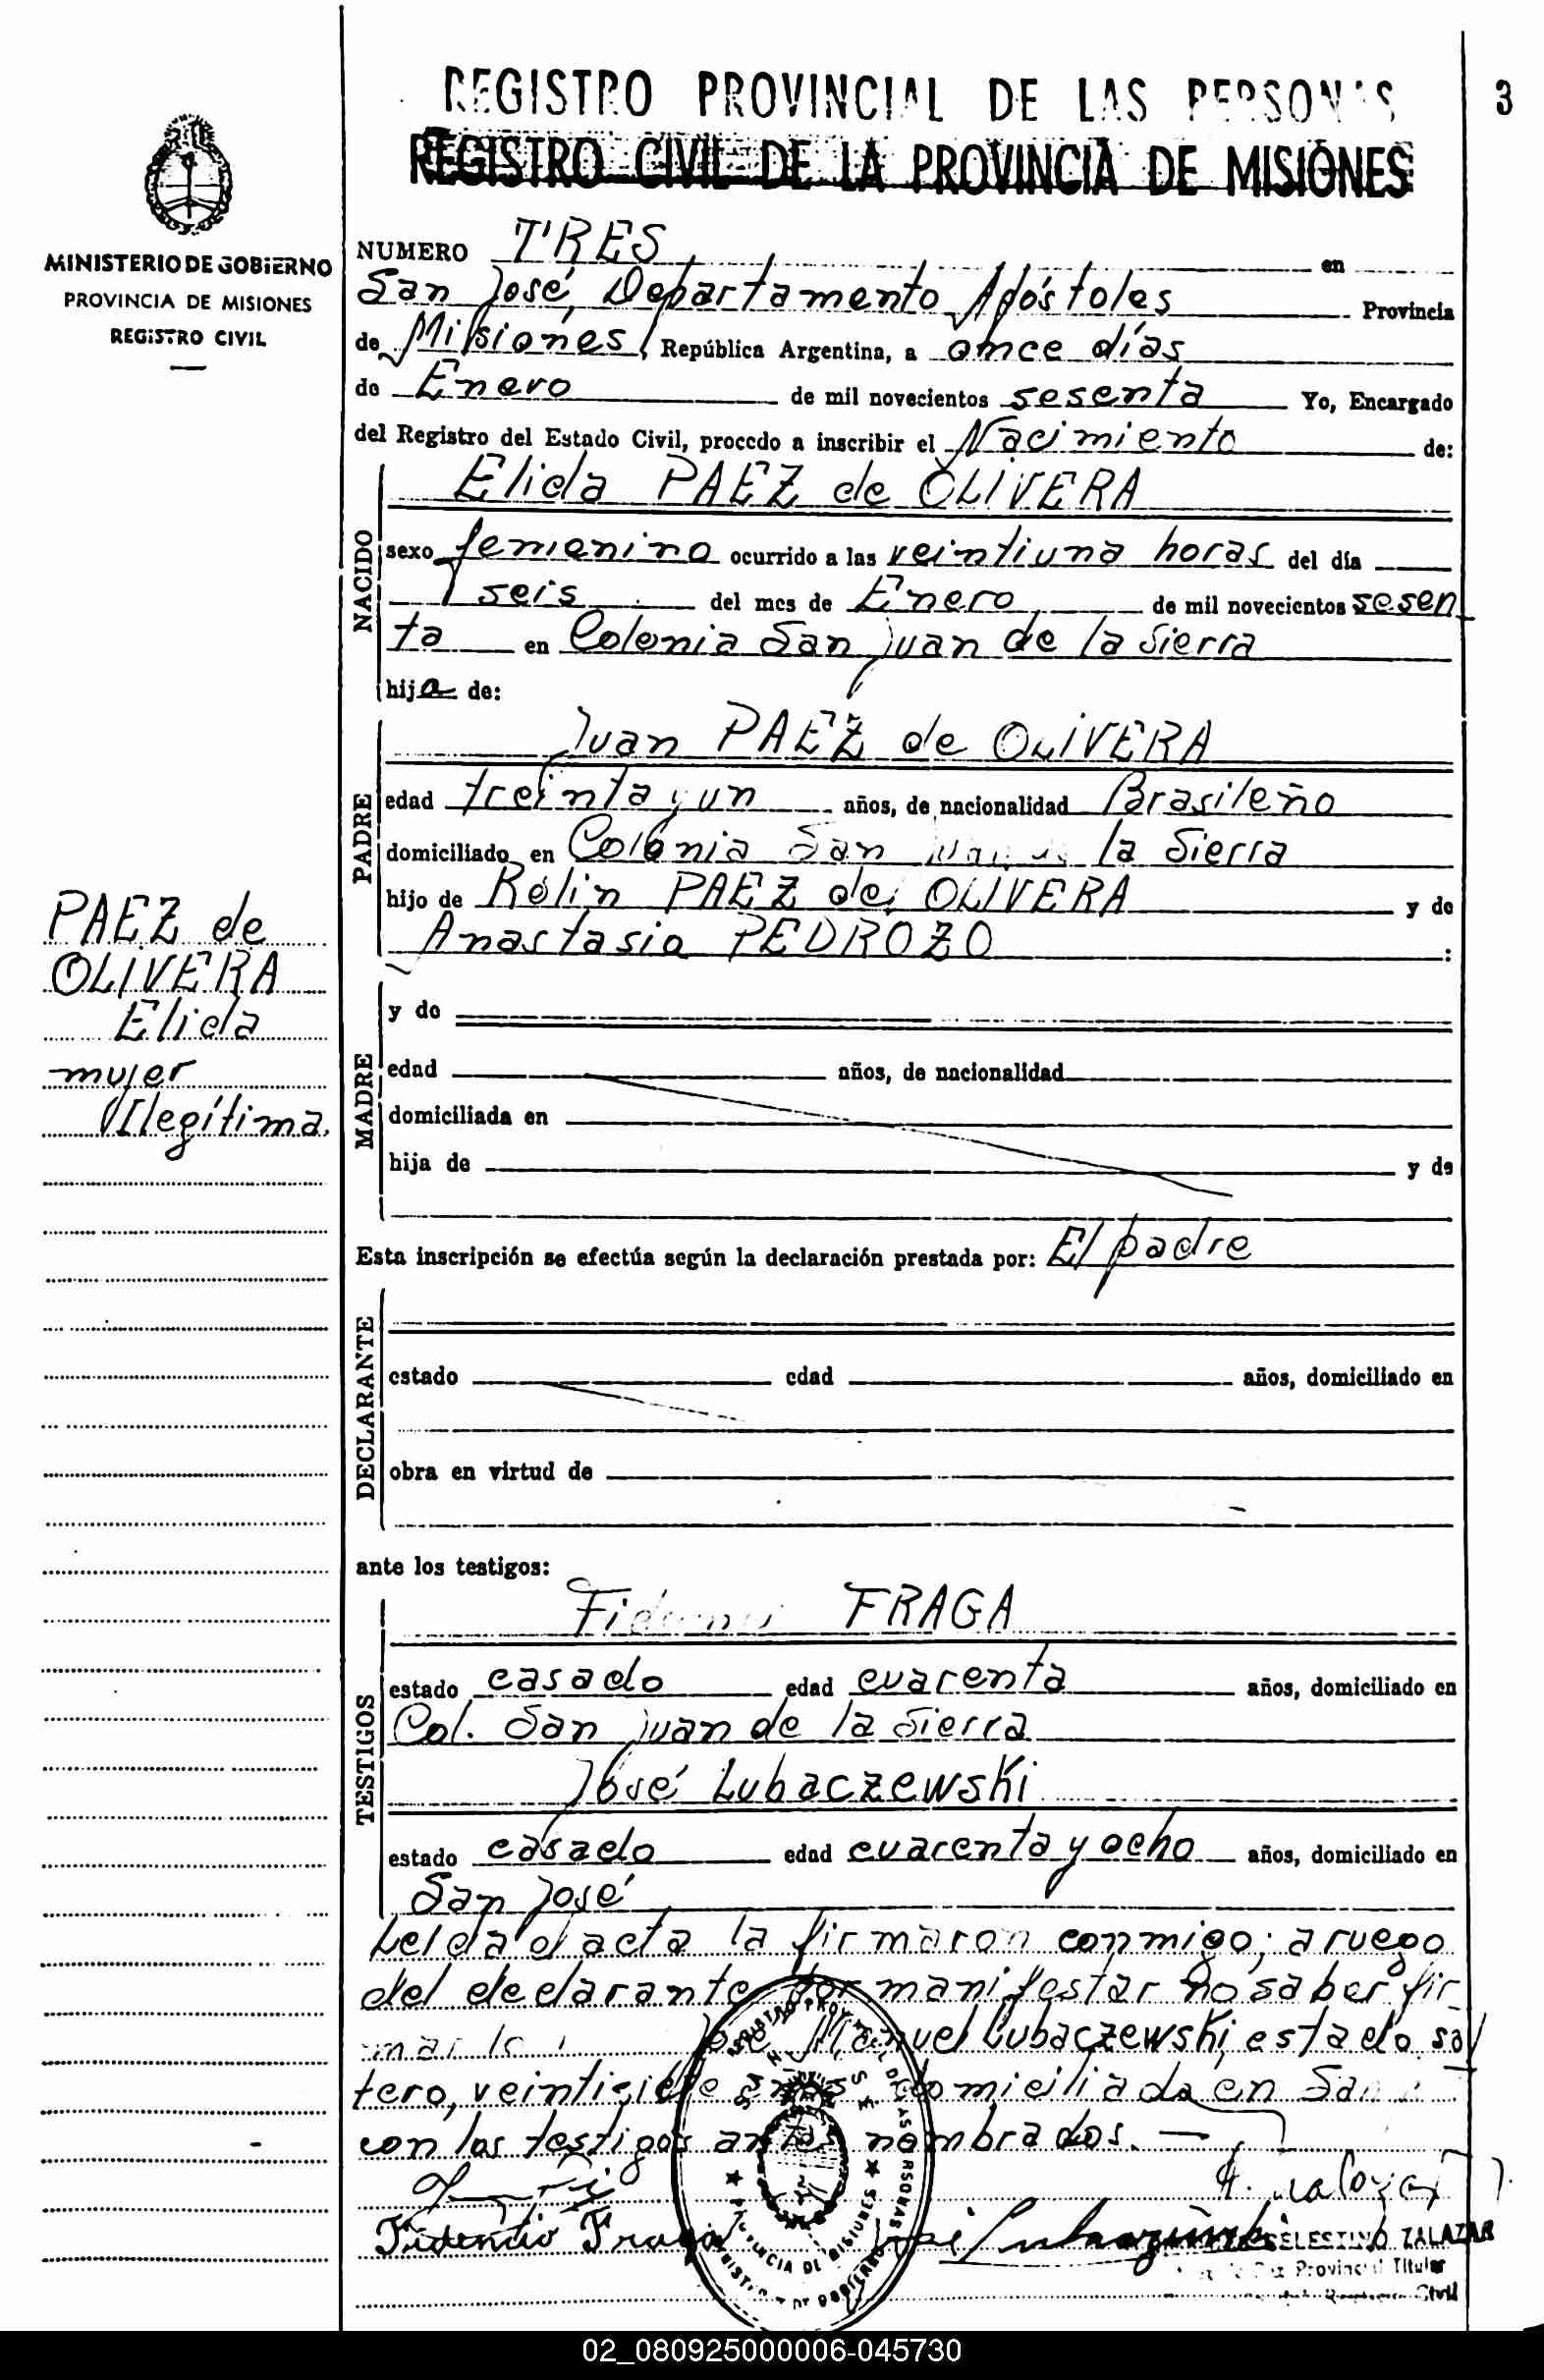 REGISTRO PROVINCIAL DE LAS PERSONAS
3
REGISTRO CIVIL DE LA PROVINCIA DE MISIONES
MINISTERIO DE GOBIERNO
PROVINCIA DE MISIONES
REGISTRO CIVIL
NUMERO TRES en
San José, Departamento Apóstoles Provincia
de Misiones, República Argentina, a once días
de Enero de mil novecientos sesenta Yo, Encargado
del Registro del Estado Civil, procedo a inscribir el Nacimiento de:
NACIDO
Elida PAEZ de OLIVERA
sexo femenino ocurrido a las veintiuna horas del día
seis del mes de Enero de mil novecientos sesen
ta en Colonia San Juan de la Sierra
hija de:
PADRE
Juan PAEZ de OLIVERA
edad treinta y un años, de nacionalidad Brasileño
domiciliado en Colonia San Juan de la Sierra
hijo de Rolin PAEZ de OLIVERA y de
Anastasia PEDROZO :
PAEZ de
OLIVERA
Elida
mujer
Ilegítima.
MADRE
y de
edad años, de nacionalidad
domiciliada en
hija de y de
Esta inscripción se efectúa según la declaración prestada por: El padre
DECLARANTE
estado edad años, domiciliado en
obra en virtud de
ante los testigos:
TESTIGOS
FRAGA
estado casado edad cuarenta años, domiciliado en
Col. San Juan de la Sierra
José Lubaczewski
estado casado edad cuarenta y ocho años, domiciliado en
San José
Leida el acta la firmaron conmigo; a ruego
del declarante por manifestar no saber fir
mar lo Manuel Lubaczewski, estado sol
tero, veintisiete años domiciliada en San
con los testigos antes nombrados. —
Fidencio Fraga
CELESTINO ZALAZAR
Juez de Paz Provincial Titular
Civil
02_080925000006-045730